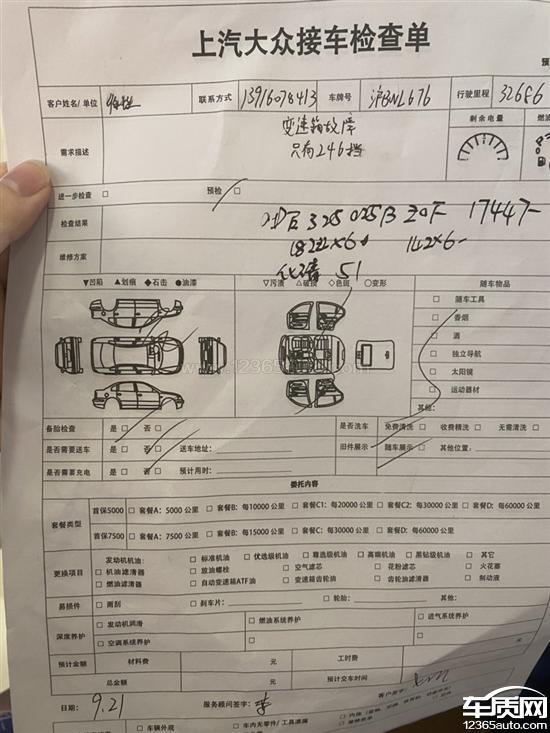 上汽大众接车检查单
客户姓名/单位 联系方式 13916078413 车牌号 沪BNL676 行驶里程 32686
需求描述 变速箱故障 剩余电量
只有246挡
进一步检查 □ 预检 □
检查结果 325 025B Z0F 17447-
维修方案 1822x6 142x6-
51
▼凹陷 ▲划痕 ◆石击 ●油漆 ▽污渍 △破损 ◇色斑 ○变形 随车物品
□ 随车工具
□ 香烟
□ 酒
□ 独立导航
□ 太阳镜
□ 运动器材
其他:
备胎检查 是 □ 否 □ 是否洗车 免费清洗 □ 收费精洗 □ 无需清洗 □
是否需要送车 是 □ 否 □ 送车地址: 旧件展示 随车展示 □ 其他位置:
是否需要充电 是 □ 否 □ 预计用时:
委托内容
套餐类型 首保5000 □ 套餐A: 5000 公里 □ 套餐B: 每10000 公里 □ 套餐C1: 每20000 公里 □ 套餐C2: 每30000 公里 □ 套餐D: 每60000 公里
首保7500 □ 套餐A: 7500 公里 □ 套餐B: 每15000 公里 □ 套餐C: 每30000 公里 □ 套餐D: 每60000 公里
更换项目 发动机机油: □ 标准机油 □ 优选级机油 □ 尊选级机油 □ 高端机油 □ 黑钻级机油 □ 其它
□ 机油滤清器 □ 放油螺栓 □ 空气滤芯 □ 花粉滤芯 □ 火花塞
□ 燃油滤清器 □ 自动变速箱ATF油 □ 变速箱齿轮油 □ 齿轮油滤清器 □ 制动液
易损件 □ 雨刮 □ 刹车片: □ 轮胎: 其他:
深度养护 □ 发动机润滑 □ 燃油系统养护 □ 进气系统养护
□ 空调系统养护 □ □
预计金额 材料费 元 工时费 元
总金额 元 预计交车时间
日期: 9.21 服务顾问签字: 客户签字:
□ 车辆外观 □ 车内无零件/工具遗漏
车质网
12365auto.com